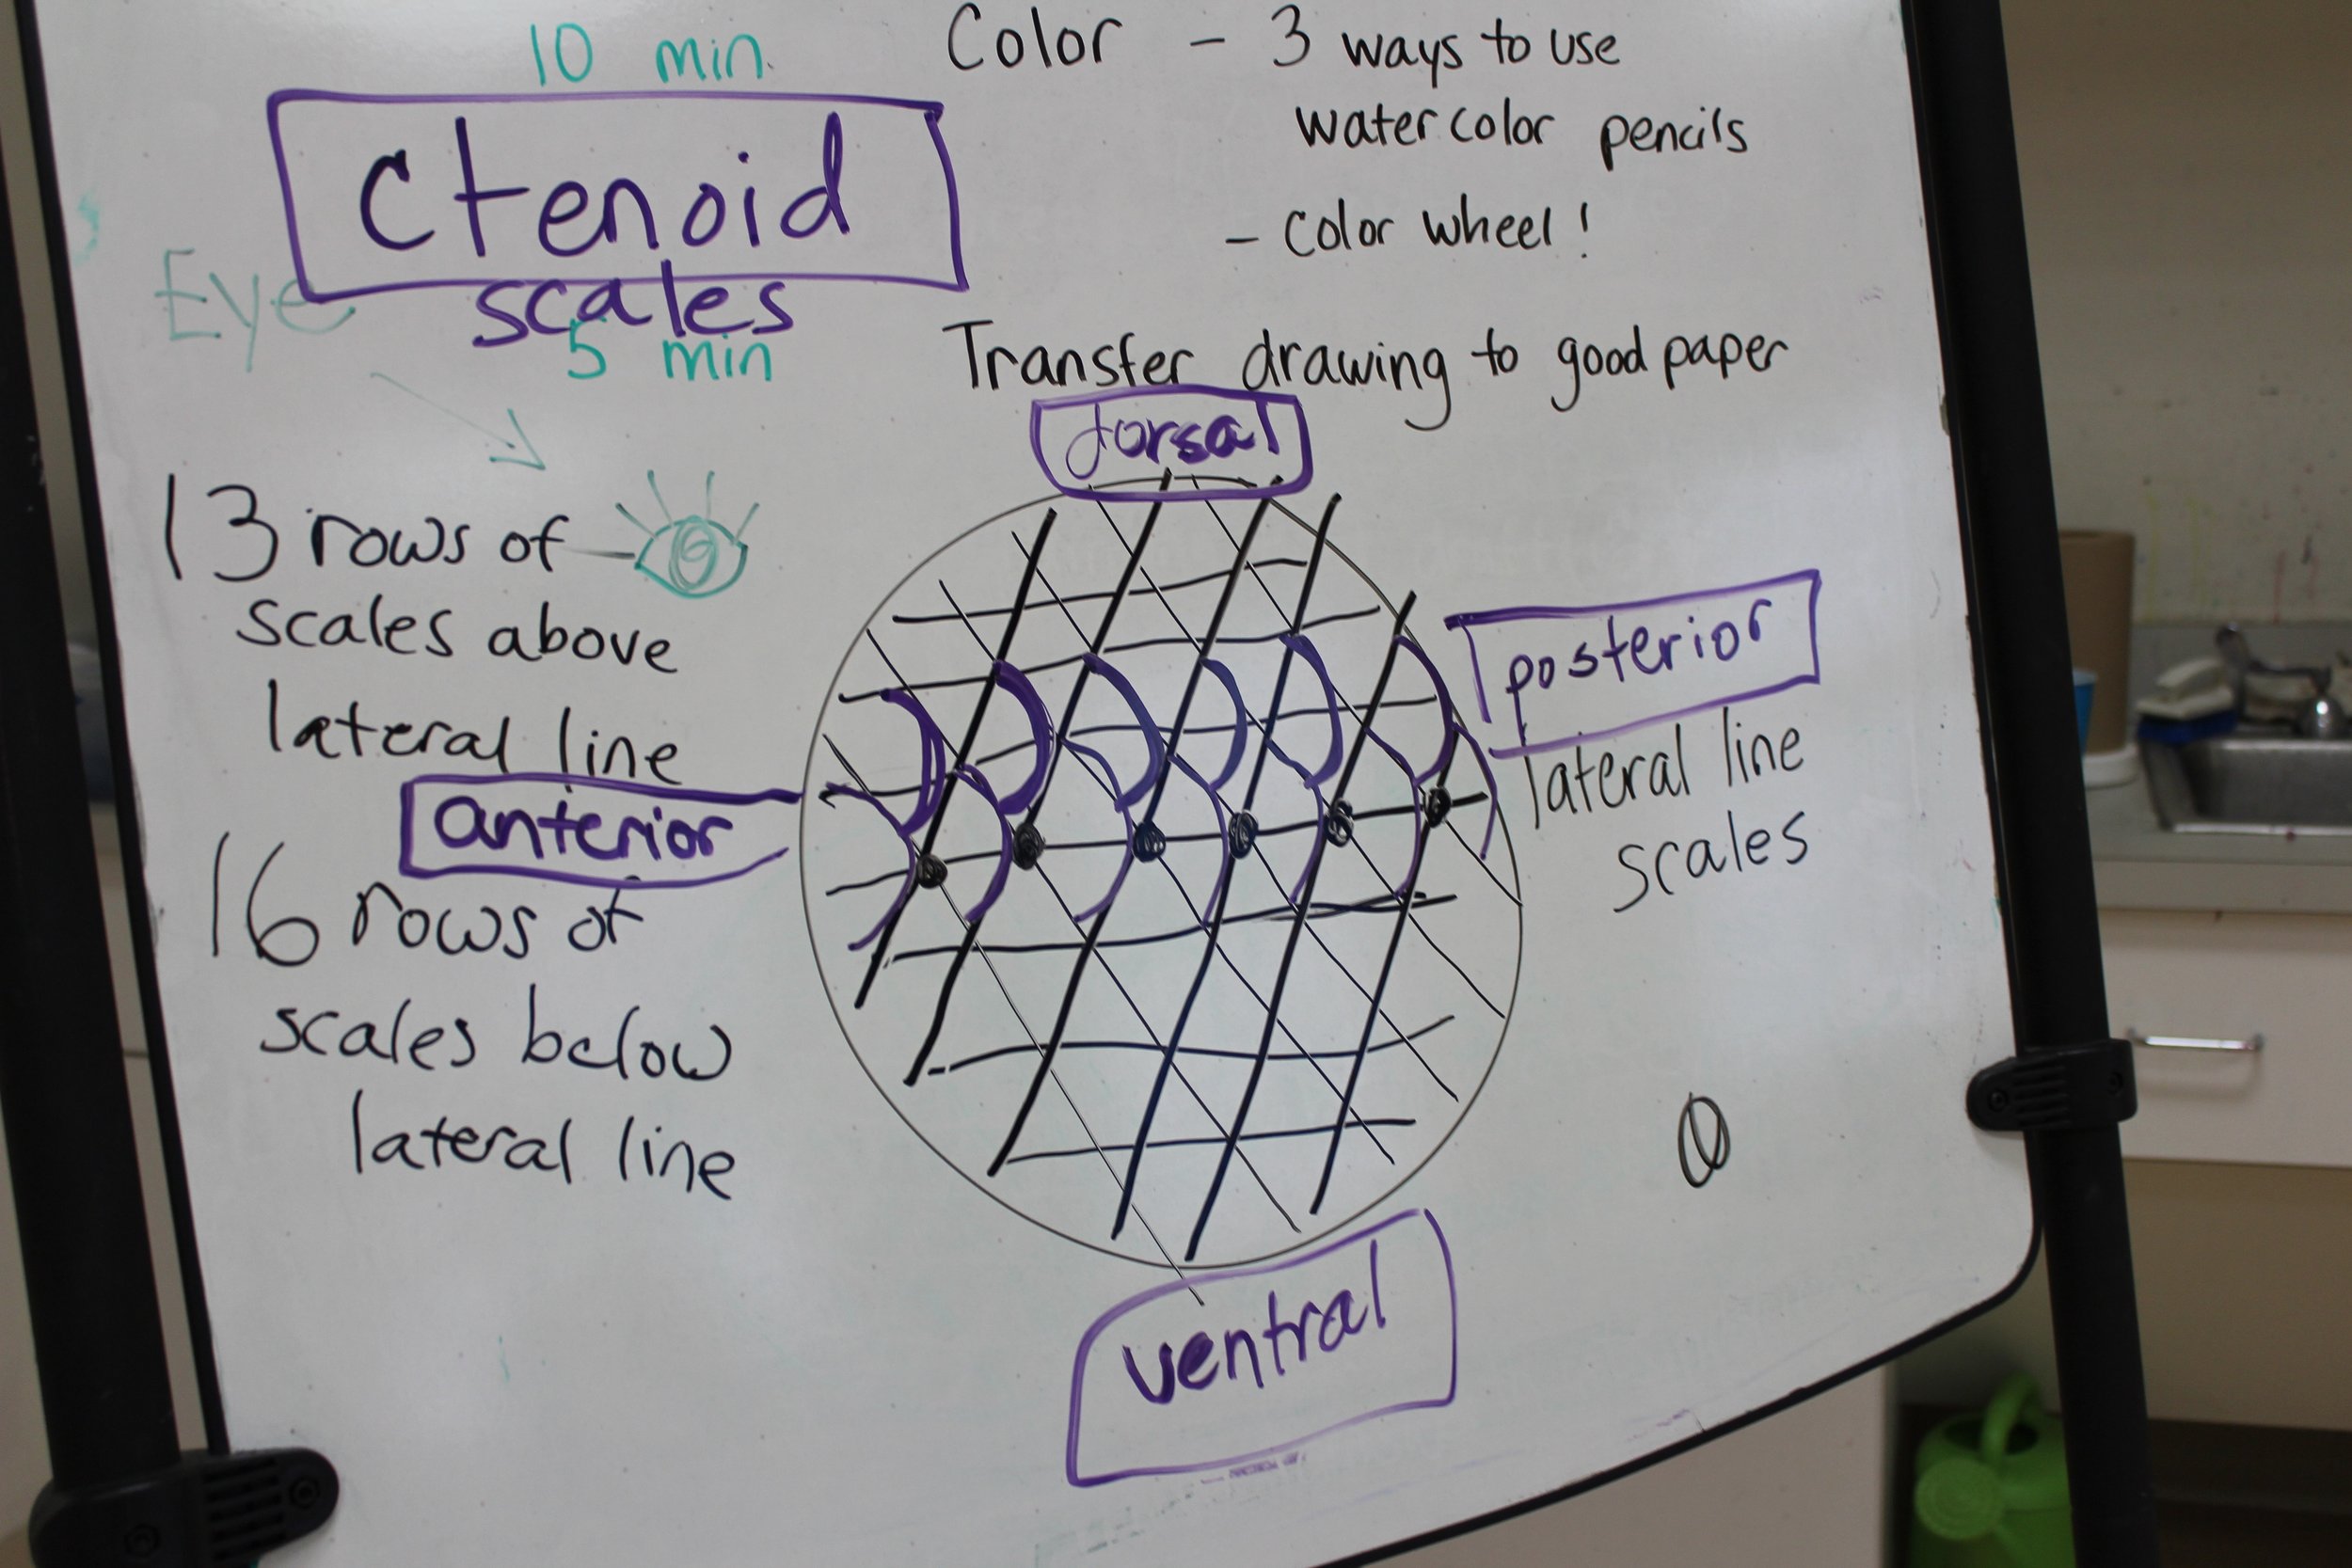 10 min.
Color - 3 ways to use
watercolor pencils
- Color wheel!
Ctenoid
scales
Eye
5 min
Transfer drawing to good paper
dorsal
13 rows of
scales above
lateral line
posterior
lateral line
scales
anterior
16 rows of
scales below
lateral line
ventral